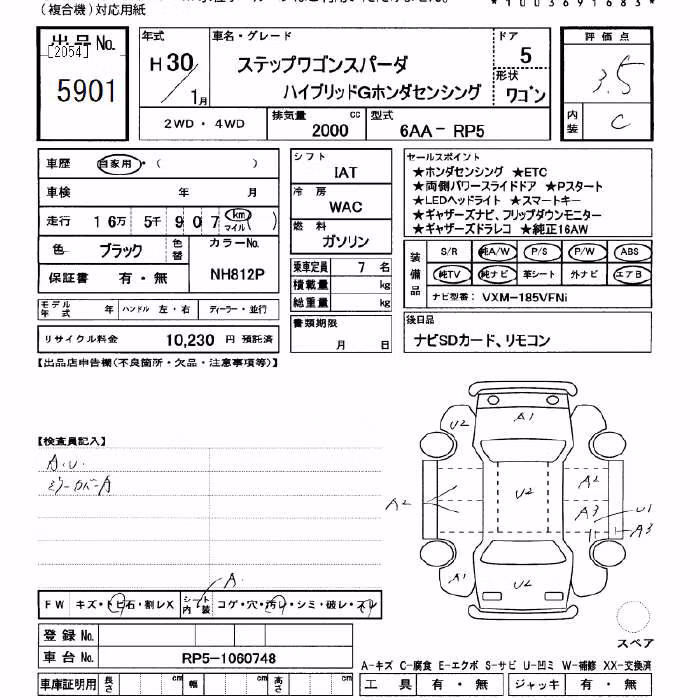 (複合機)対応用紙
*1003691683*
出品No.
[2054]
5901
年式
H30/1月
車名・グレード
ステップワゴンスパーダ
ハイブリッドGホンダセンシング
ドア
5
形状
ワゴン
2WD・4WD
排気量
2000 cc
型式
6AA-RP5
評価点
3.5
内装
C
車歴 自家用・( )
車検 年 月
走行 16万5千907(km マイル)
色 ブラック 色替
カラーNo.
NH812P
保証書 有・無
モデル年式 年 ハンドル 左・右 ディーラー・並行
リサイクル料金 10,230 円 預託済
シフト
IAT
冷房
WAC
燃料
ガソリン
乗車定員 7 名
積載量 kg
総重量 kg
書類期限
月 日
セールスポイント
★ホンダセンシング ★ETC
★両側パワースライドドア ★Pスタート
★LEDヘッドライト ★スマートキー
★ギャザーズナビ、フリップダウンモニター
★ギャザーズドラレコ ★純正16AW
装備品
S/R 純A/W P/S P/W ABS
純TV 純ナビ 革シート 外ナビ エアB
ナビ型番: VXM-185VFNi
後日品
ナビSDカード、リモコン
【出品店申告欄(不良箇所・欠品・注意事項等)】
【検査員記入】
A.U.
ミラーカバーA
U2
A1
A2
U2
A2
A3
U1
A3
A1
U2
スペア
FW キズ・トビ石・割レX シート内装 コゲ・穴・汚レ・シミ・破レ・スレ
A
登録No.
車台No. RP5-1060748
車庫証明用 長さ cm 幅 cm 高さ cm
A-キズ C-腐食 E-エクボ S-サビ U-凹ミ W-補修 XX-交換済
工具 有・無 ジャッキ 有・無